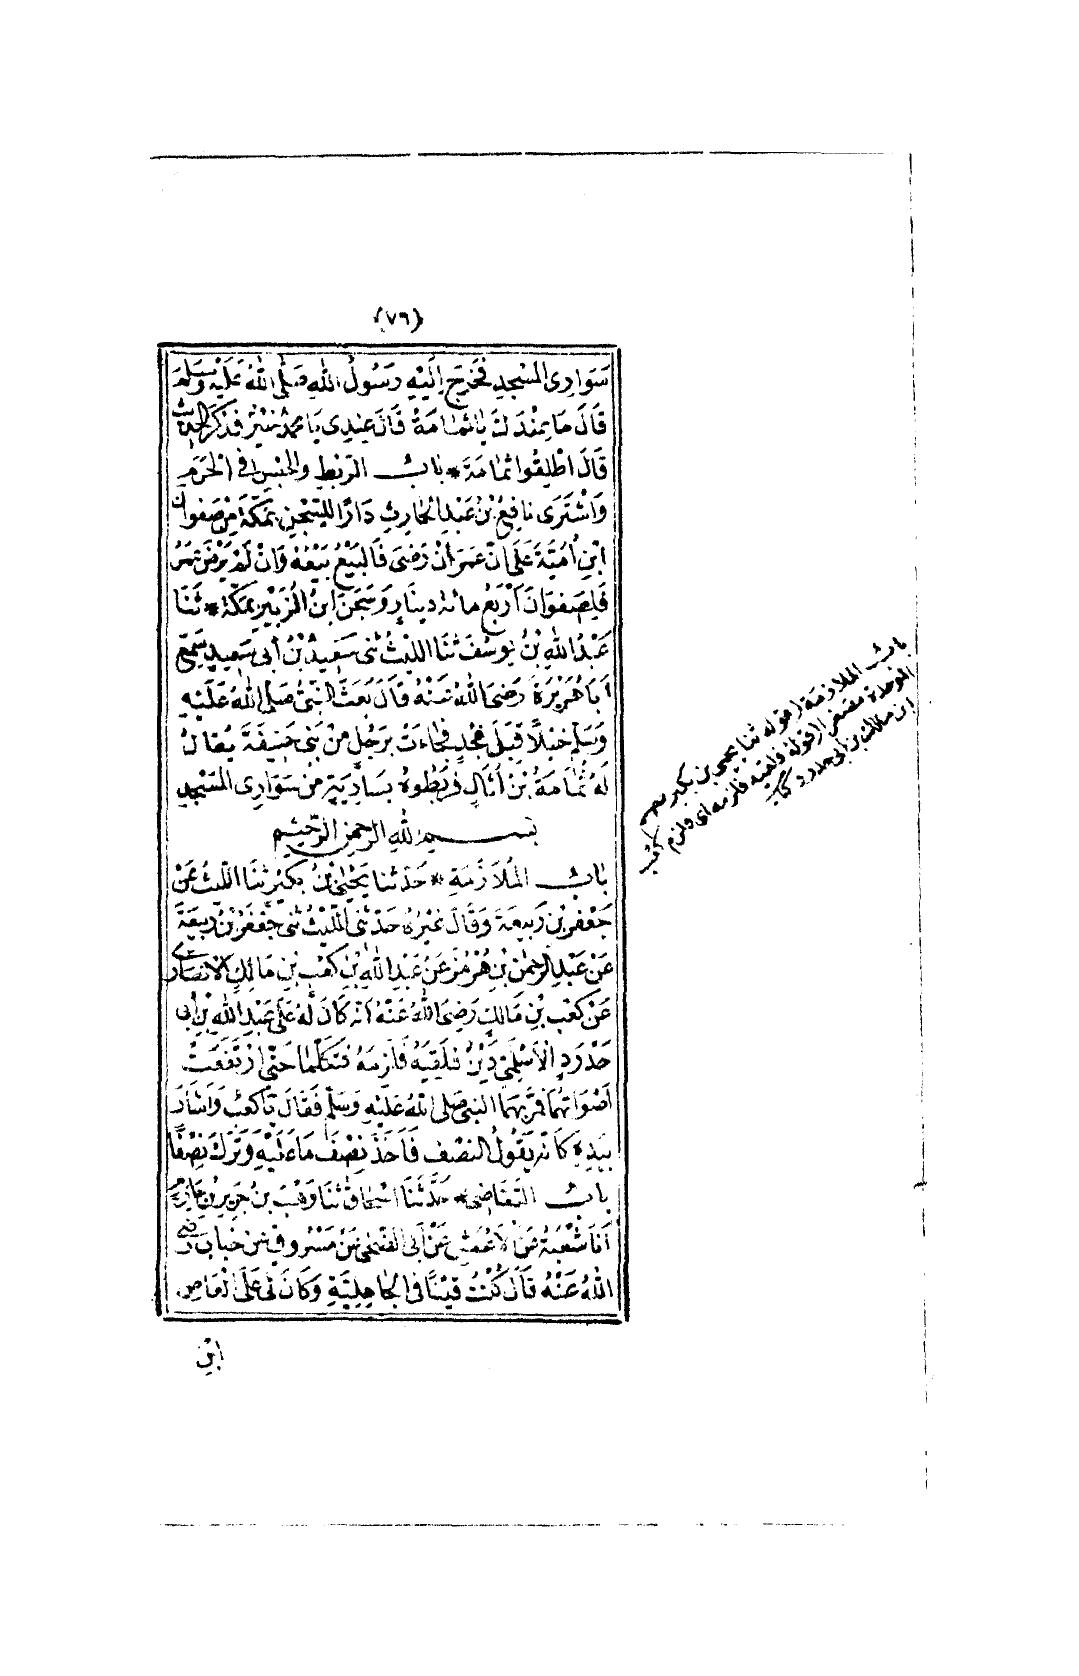 {٧٦}
سَوَارِى المَسْجِدِ فَخَرَجَ اِلَيْهِ رَسُولُ اللهِ صَلَّى اللهُ عَلَيْهِ وَسَلَّمَ
قَالَ مَا عِنْدَكَ يَا ثُمَامَةُ قَالَ عِنْدِى يَا مُحَمَّدُ خَيْرٌ فَذَكَرَ الحَدِيثَ
قَالَ اَطْلِقُوا ثُمَامَةَ * بابُ الرَّبْطِ وَالحَبْسِ فِى الحَرَمِ
وَاشْتَرَى نَافِعُ بْنُ عَبْدِ الحَارِثِ دَارًا لِلسِّجْنِ بِمَكَّةَ مِنْ صَفْوَانَ
ابْنِ اُمَيَّةَ عَلَى اَنَّ عُمَرَ اِنْ رَضِىَ فَالبَيْعُ بَيْعُهُ وَاِنْ لَمْ يَرْضَ عُمَرُ
فَلِصَفْوَانَ اَرْبَعُ مِائَةِ دِينَارٍ وَسَجَنَ ابْنُ الزُّبَيْرِ بِمَكَّةَ * ثَنَا
عَبْدُ اللهِ بْنُ يُوسُفَ ثَنَا اللَّيْثُ ثَنِى سَعِيدُ بْنُ أَبِى سَعِيدٍ سَمِعَ
اَبَا هُرَيْرَةَ رَضِىَ اللهُ عَنْهُ قَالَ بَعَثَ النَّبِىُّ صَلَّى اللهُ عَلَيْهِ
وَسَلَّمَ خَيْلًا قِبَلَ نَجْدٍ فَجَاءَتْ بِرَجُلٍ مِنْ بَنِى حَنِيفَةَ يُقَالُ
لَهُ ثُمَامَةُ بْنُ اُثَالٍ فَرَبَطُوهُ بِسَارِيَةٍ مِنْ سَوَارِى المَسْجِدِ
بسم الله الرحمن الرحيم
بابُ المُلَازَمَةِ * حَدَّثَنَا يَحْيَى بْنُ بُكَيْرٍ ثَنَا اللَّيْثُ عَنْ
جَعْفَرِ بْنِ رَبِيعَةَ وَقَالَ غَيْرُهُ حَدَّثَنِى اللَّيْثُ ثَنِى جَعْفَرُ بْنُ رَبِيعَةَ
عَنْ عَبْدِ الرَّحْمٰنِ بْنِ هُرْمُزَ عَنْ عَبْدِ اللهِ بْنِ كَعْبِ بْنِ مَالِكٍ الاَنْصَارِى
عَنْ كَعْبِ بْنِ مَالِكٍ رَضِىَ اللهُ عَنْهُ اَنَّهُ كَانَ لَهُ عَلَى عَبْدِ اللهِ بْنِ أَبِى
حَدْرَدٍ الاَسْلَمِىِّ دَيْنٌ فَلَقِيَهُ فَلَزِمَهُ فَتَكَلَّمَا حَتَّى ارْتَفَعَتْ
اَصْوَاتُهُمَا فَمَرَّ بِهِمَا النَّبِىُّ صَلَّى اللهُ عَلَيْهِ وَسَلَّمَ فَقَالَ يَا كَعْبُ وَاَشَارَ
بِيَدِهِ كَاَنَّهُ يَقُولُ النِّصْفَ فَاَخَذَ نِصْفَ مَا عَلَيْهِ وَتَرَكَ نِصْفًا
بابُ التَّقَاضِى * حَدَّثَنَا اِسْحَاقُ ثَنَا وَهْبُ بْنُ جَرِيرِ بْنِ حَازِمٍ
اَنَا شُعْبَةُ عَنِ الاَعْمَشِ عَنْ أَبِى الضُّحَى عَنْ مَسْرُوقٍ عَنْ خَبَّابٍ رَضِىَ
اللهُ عَنْهُ قَالَ كُنْتُ قَيْنًا فِى الجَاهِلِيَّةِ وَكَانَ لِى عَلَى العَاصِ
ابْنِ
باب الملازمة (قوله ثنا يحيى بن بكير
الموحدة مصغر (قوله فلقيه فلزمه اى ولزم
ابن مالك بن ابى حدرد